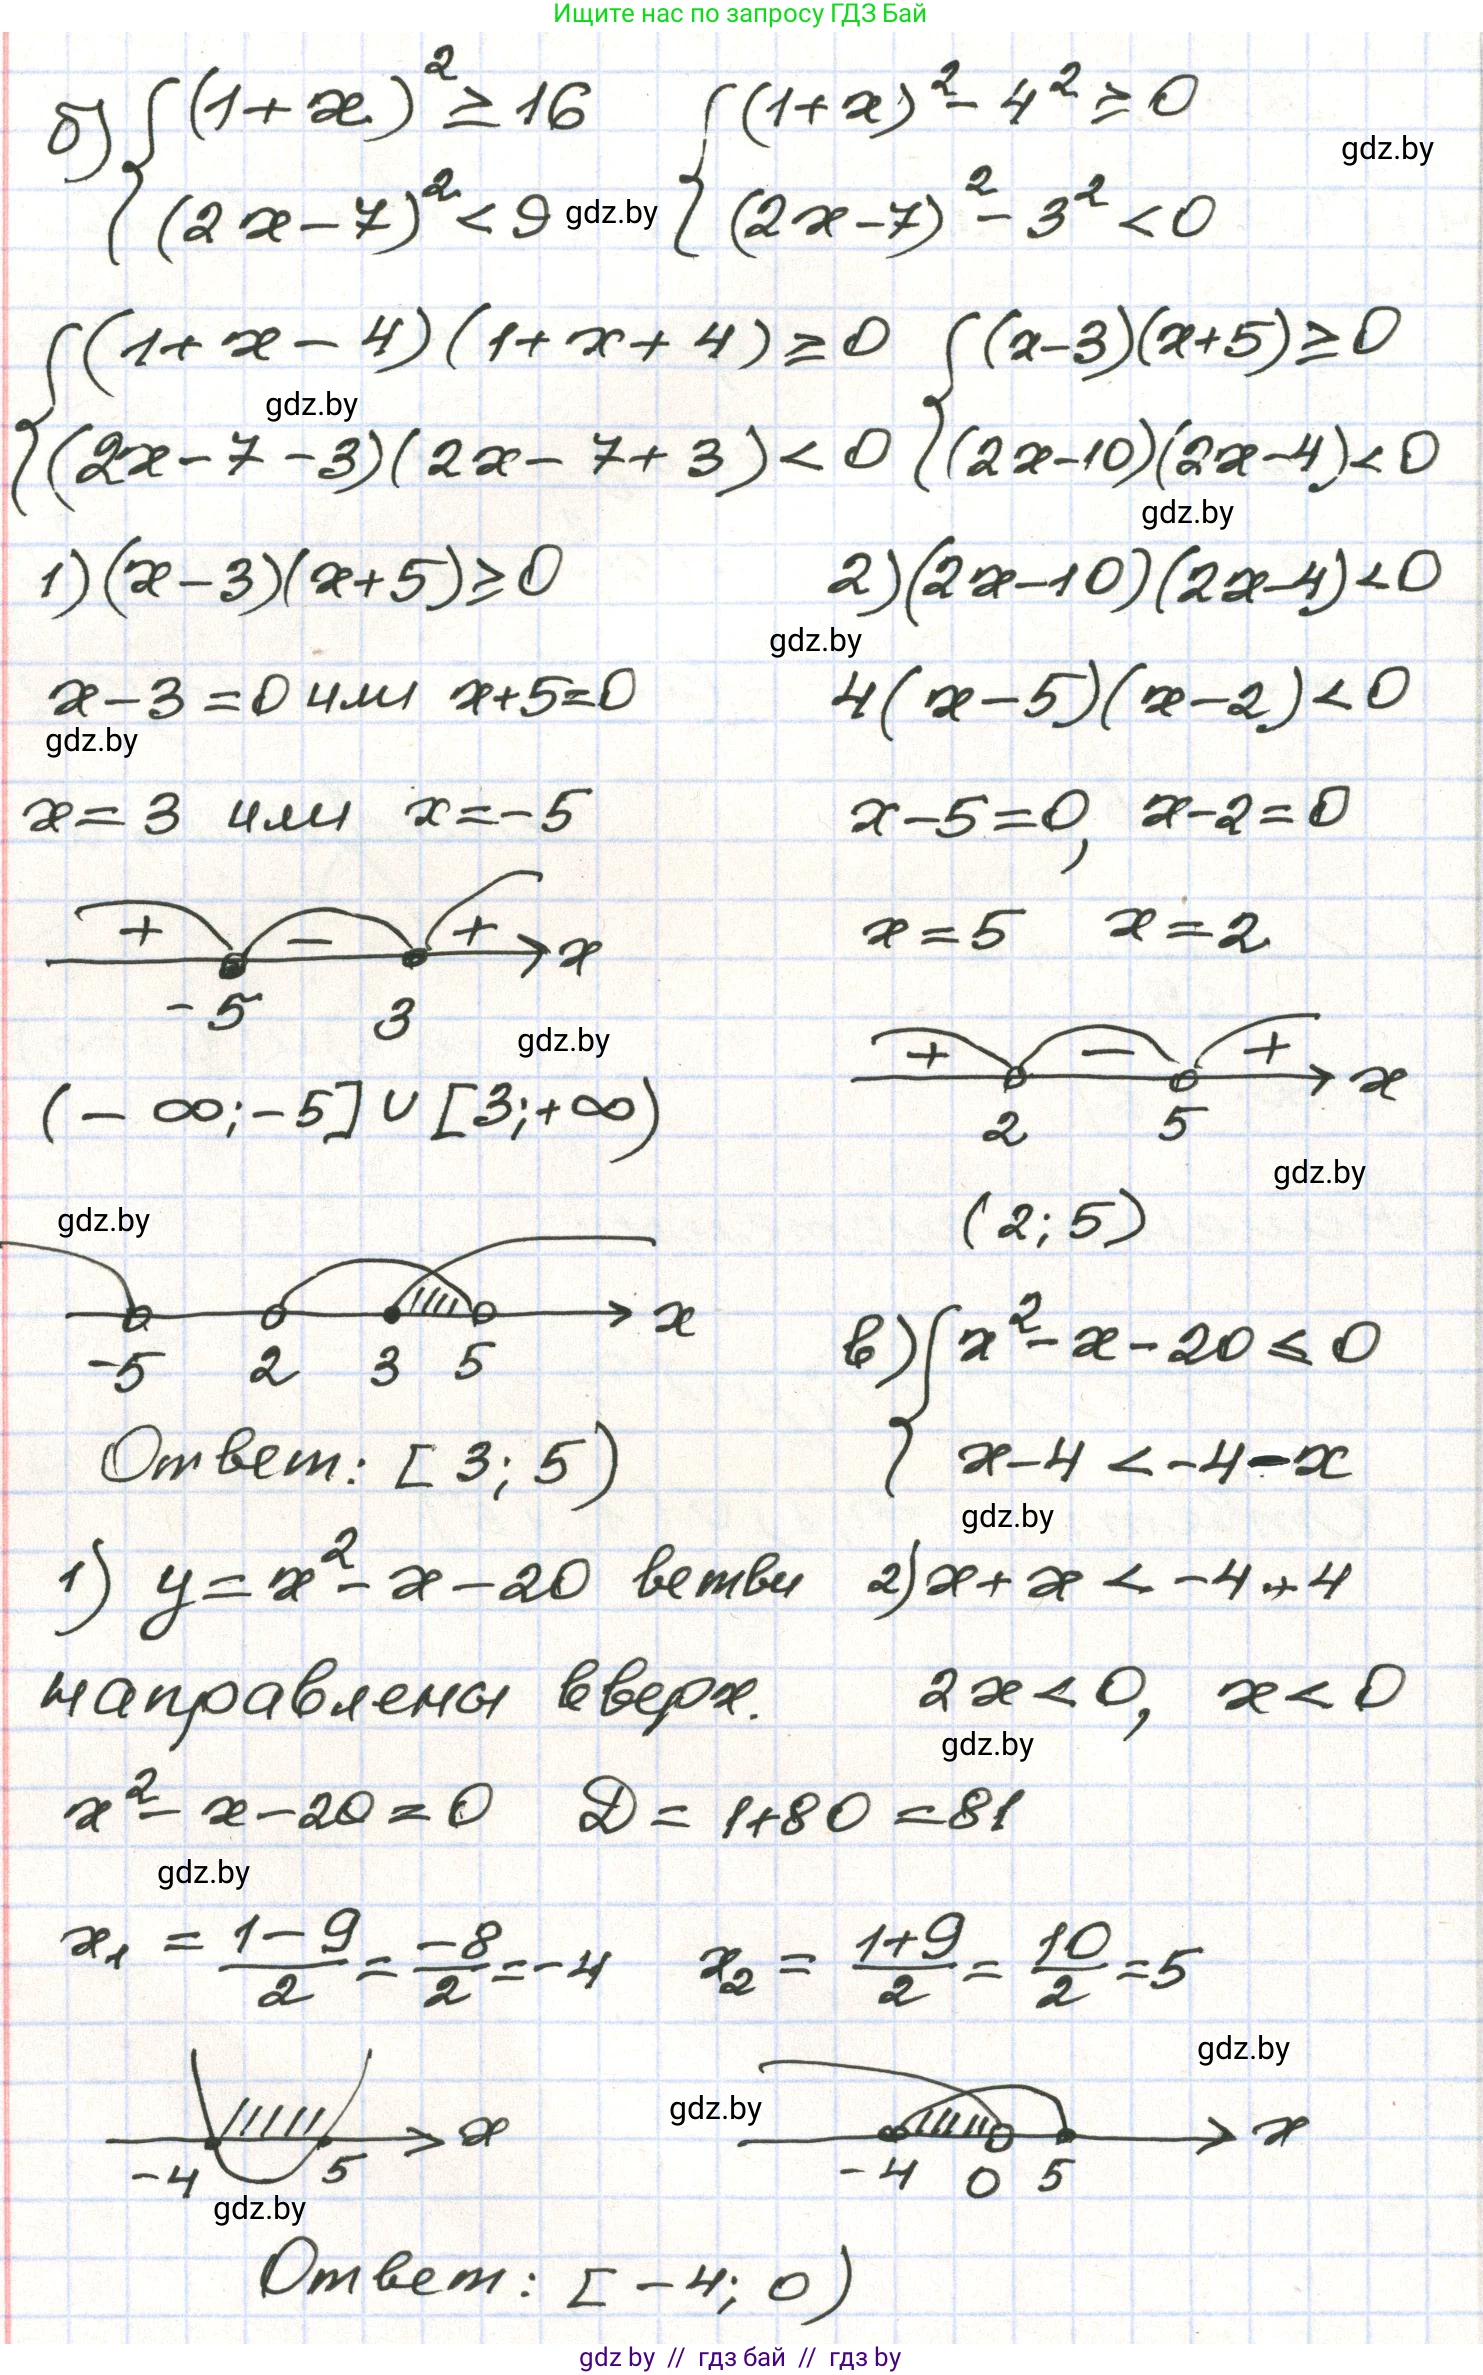 Ищите нас по запросу ГДЗ Бай
б) { (1+x)² ≥ 16   { (1+x)² - 4² ≥ 0
gdz.by
(2x-7)² < 9   (2x-7)² - 3² < 0
gdz.by
{ (1+x-4)(1+x+4) ≥ 0   { (x-3)(x+5) ≥ 0
gdz.by
(2x-7-3)(2x-7+3) < 0   (2x-10)(2x-4) < 0
gdz.by
1) (x-3)(x+5) ≥ 0
x-3=0 или x+5=0
gdz.by
x=3 или x=-5
+ - + x
-5 3
gdz.by
(-∞;-5] ∪ [3;+∞)
2) (2x-10)(2x-4) < 0
gdz.by
4(x-5)(x-2) < 0
x-5=0, x-2=0
x=5 x=2
+ - + x
2 5
gdz.by
(2;5)
gdz.by
x
-5 2 3 5
Ответ: [3;5)
в) { x²-x-20 ≤ 0
x-4 < -4-x
gdz.by
1) y=x²-x-20 ветви
направлены вверх.
2) x+x < -4+4
2x<0, x<0
gdz.by
x²-x-20=0   D=1+80=81
gdz.by
x₁ = (1-9)/2 = -8/2 = -4   x₂ = (1+9)/2 = 10/2 = 5
gdz.by
x
-4 5
gdz.by
gdz.by
x
-4 0 5
Ответ: [-4;0)
gdz.by // гдз бай // гдз by